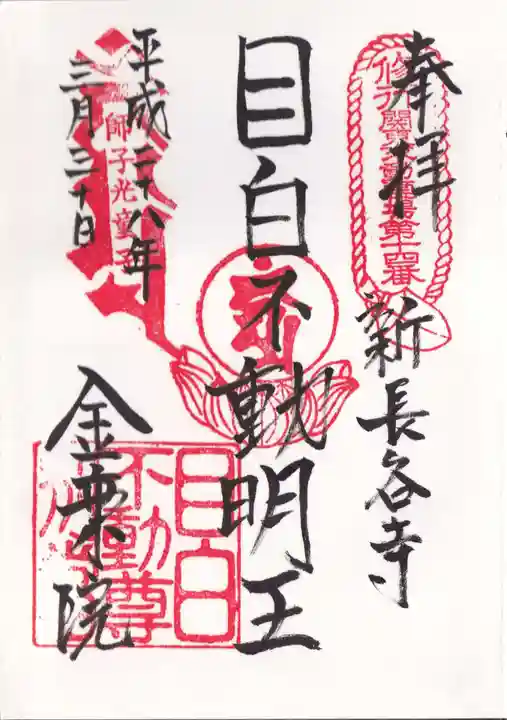 奉拝
修行 関東不動霊場第十四番
新長谷寺
目白不動明王
平成二十八年
三月三十日
師子光童子
金乗院
目白
不動尊